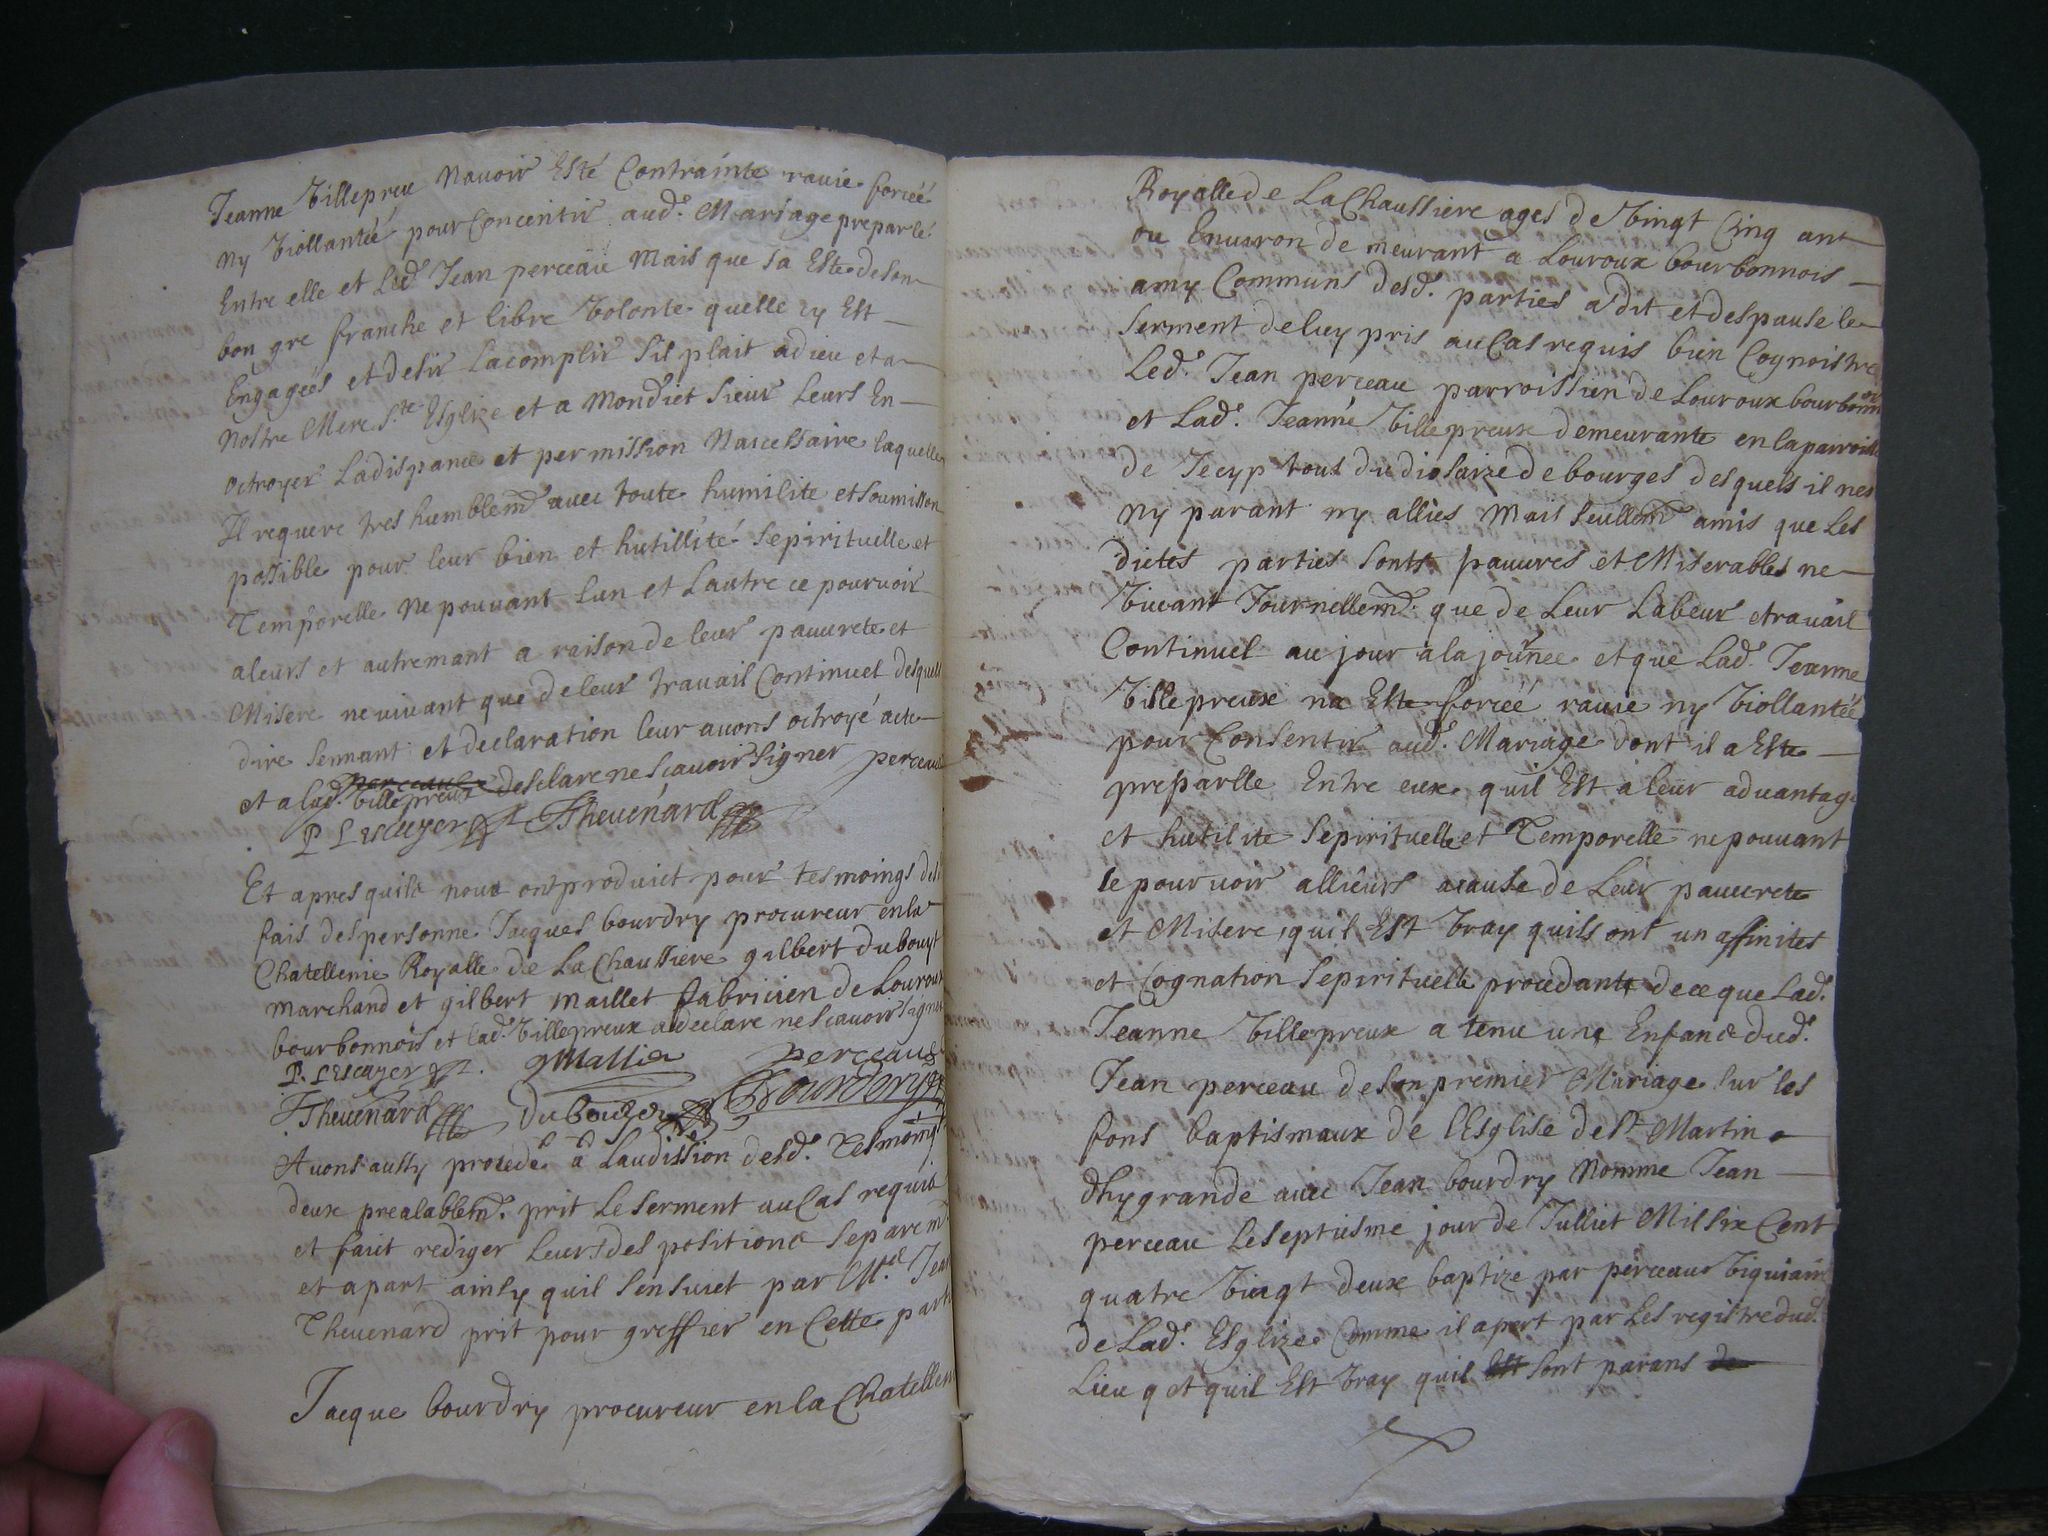 Jeanne Villepreu Navoir Esté Contrainte ravie forcéé
ny Viollantéé pour Concentir aud. Mariage preparlé
Entre elle et Led Jean perceau Mais que sa Este de son
bon gre franche et libre Volonte quelle cy Est
Engagéés et desir Lacomplir sil plait a dieu et a
Nostre Mere Ste Esglize et a Mondict Sieur Leurs En
octroyer La dispance et permission Nascessaire laquelle
Il requere tres humblemt avec toute humilite et soumission
possible pour leur bien et hutillité sepirituelle et
Temporelle Ne pouvant lun et Lautre ce pourvoir
aleurs et autremant a raison de leur pauvrete et
Misere ne vivant que de leur travail Continuel desquels
dire sermant et declaration leur avons octroyé acte
et a lad. Villepreux desclare ne scavoir signer perceau
P Lescuyer Thevenard
Et apres quils nous ont produict pour tesmoings de
fais des personne Jacques bourdry procureur en la
Chatellenie Royalle de La Chaussiere gilbert du bouyt
Marchand et gilbert maillet fabricien de Louroux
bourbonnois et lad. Villepreux a declare ne scavoir signer
P. Lescuyer gMallier perceau
Thevenard Dubouys Bourdery
Avons aussy procedé à Laudission desd. Tesmoings
deux prealablemt. prit Le serment au Cas requis
et faict rediger Leurs des positions separemt
et apart ainsy quil sensuict par Mre Jean
Thevenard prit pour greffier en Cette partie
Jacque bourdry procureur en la Chatellenie
Royalle de La Chaussiere agés de Vingt Cinq ant
ou Environ de meurant a Louroux bourbonnois
amy Communs desd. parties a dit et despause le
serment de luy pris au Cas requis bien Cognoistre
Led. Jean perceau parroissien de Louroux bourbonnois
et Lad. Jeanne Villepreux demeurante en la parroisse
de Jecyp tous du diosaize de bourges desquels il nes
ny parant ny alliés mais seullemt amis que Les
dictes parties sonts pauvres et Miserables ne
Vivant Journellemt. que de Leur Labeur etravail
Continuel au jour à la journee et que Lad. Jeanne
Villepreux na Este forcéé ravie ny Viollantéé
pour Consentir aud. Mariage dont il a Este
preparlle Entre eux quil Est a leur advantage
et hutilite sepirituelle et Temporelle ne pouvant
se pourvoir allieurs a cause de Leur pauvrete
et Misere, quil Est Vray quils ont un affinites
et Cognation sepirituelle procedante de ce que Lad.
Jeanne Villepreux a tenu une Enfand dud.
Jean perceau de son premier Mariage sur les
fons baptismaux de lEsglise de St Martin
dhygrande avec Jean bourdry Nomme Jean
perceau Le septiesme jour de Julliet Mil six Cent
quatre Vingt deux baptize par perceau Viquiaire
de Lad. Esglize Comme il apert par Les registre dud.
Lieu q et quil Est Vray quil Est sont parans de